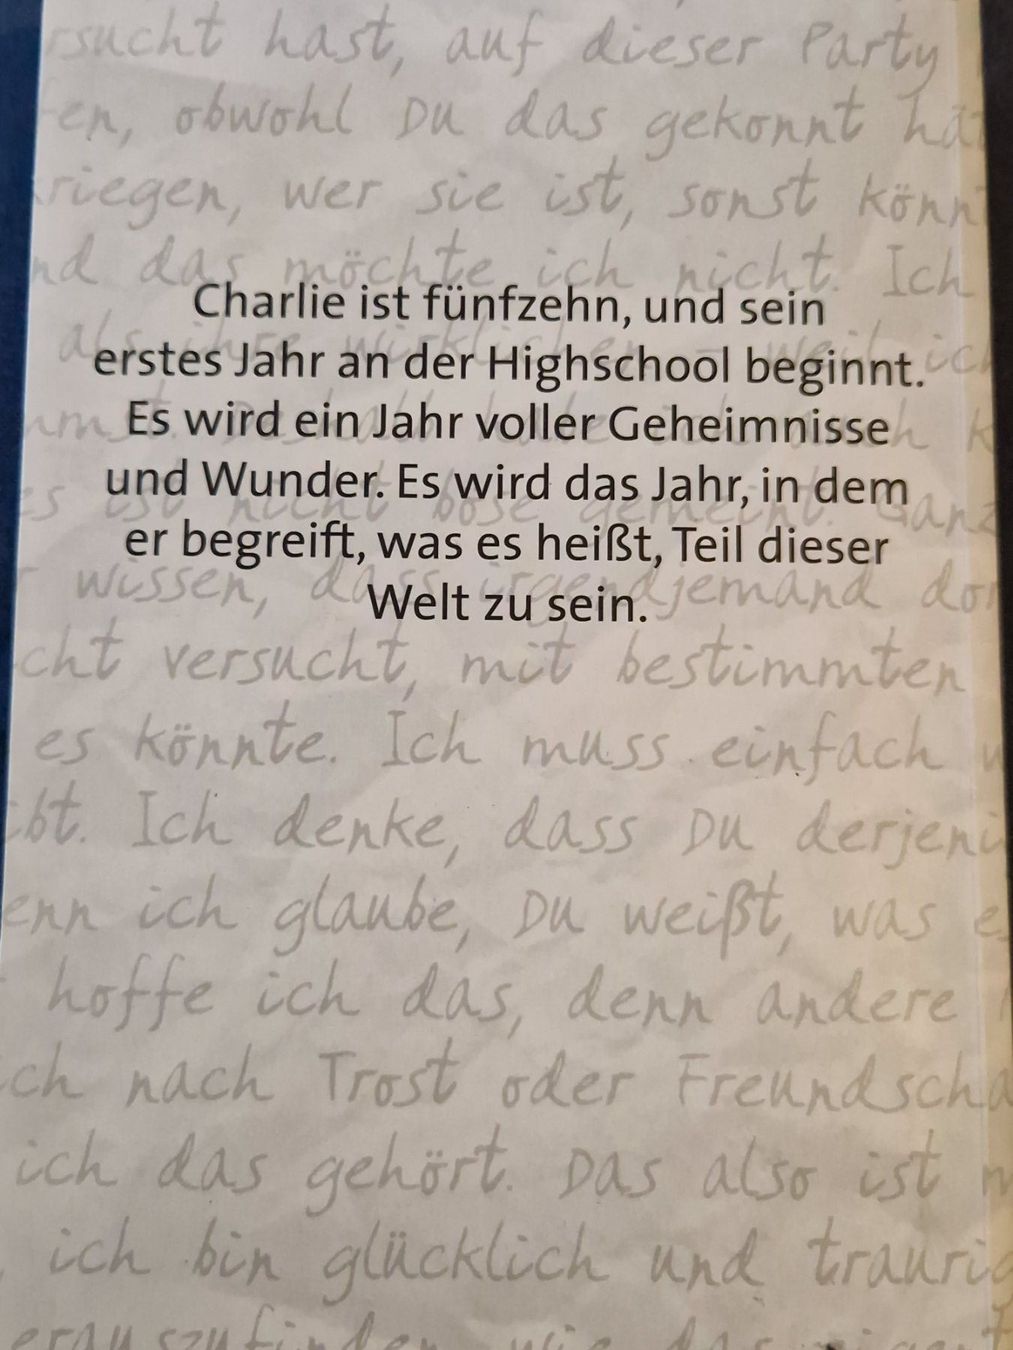 rsucht hast, auf dieser Party
en, obwohl Du das gekonnt hät
riegen, wer sie ist, sonst könnt
nd das möchte ich nicht. Ich
Charlie ist fünfzehn, und sein
als ihre wirklichen weil ich
erstes Jahr an der Highschool beginnt.
Es wird ein Jahr voller Geheimnisse
und Wunder. Es wird das Jahr, in dem
es ist nicht böse gemeint. Ganz
er begreift, was es heißt, Teil dieser
wissen, dass irgendjemand dor
Welt zu sein.
cht versucht, mit bestimmten
es könnte. Ich muss einfach
ibt. Ich denke, dass Du derjeni
enn ich glaube, Du weißt, was e
hoffe ich das, denn andere
ch nach Trost oder Freundscha
ich das gehört. Das also ist
ich bin glücklich und traurig
erauszufinden, wie das